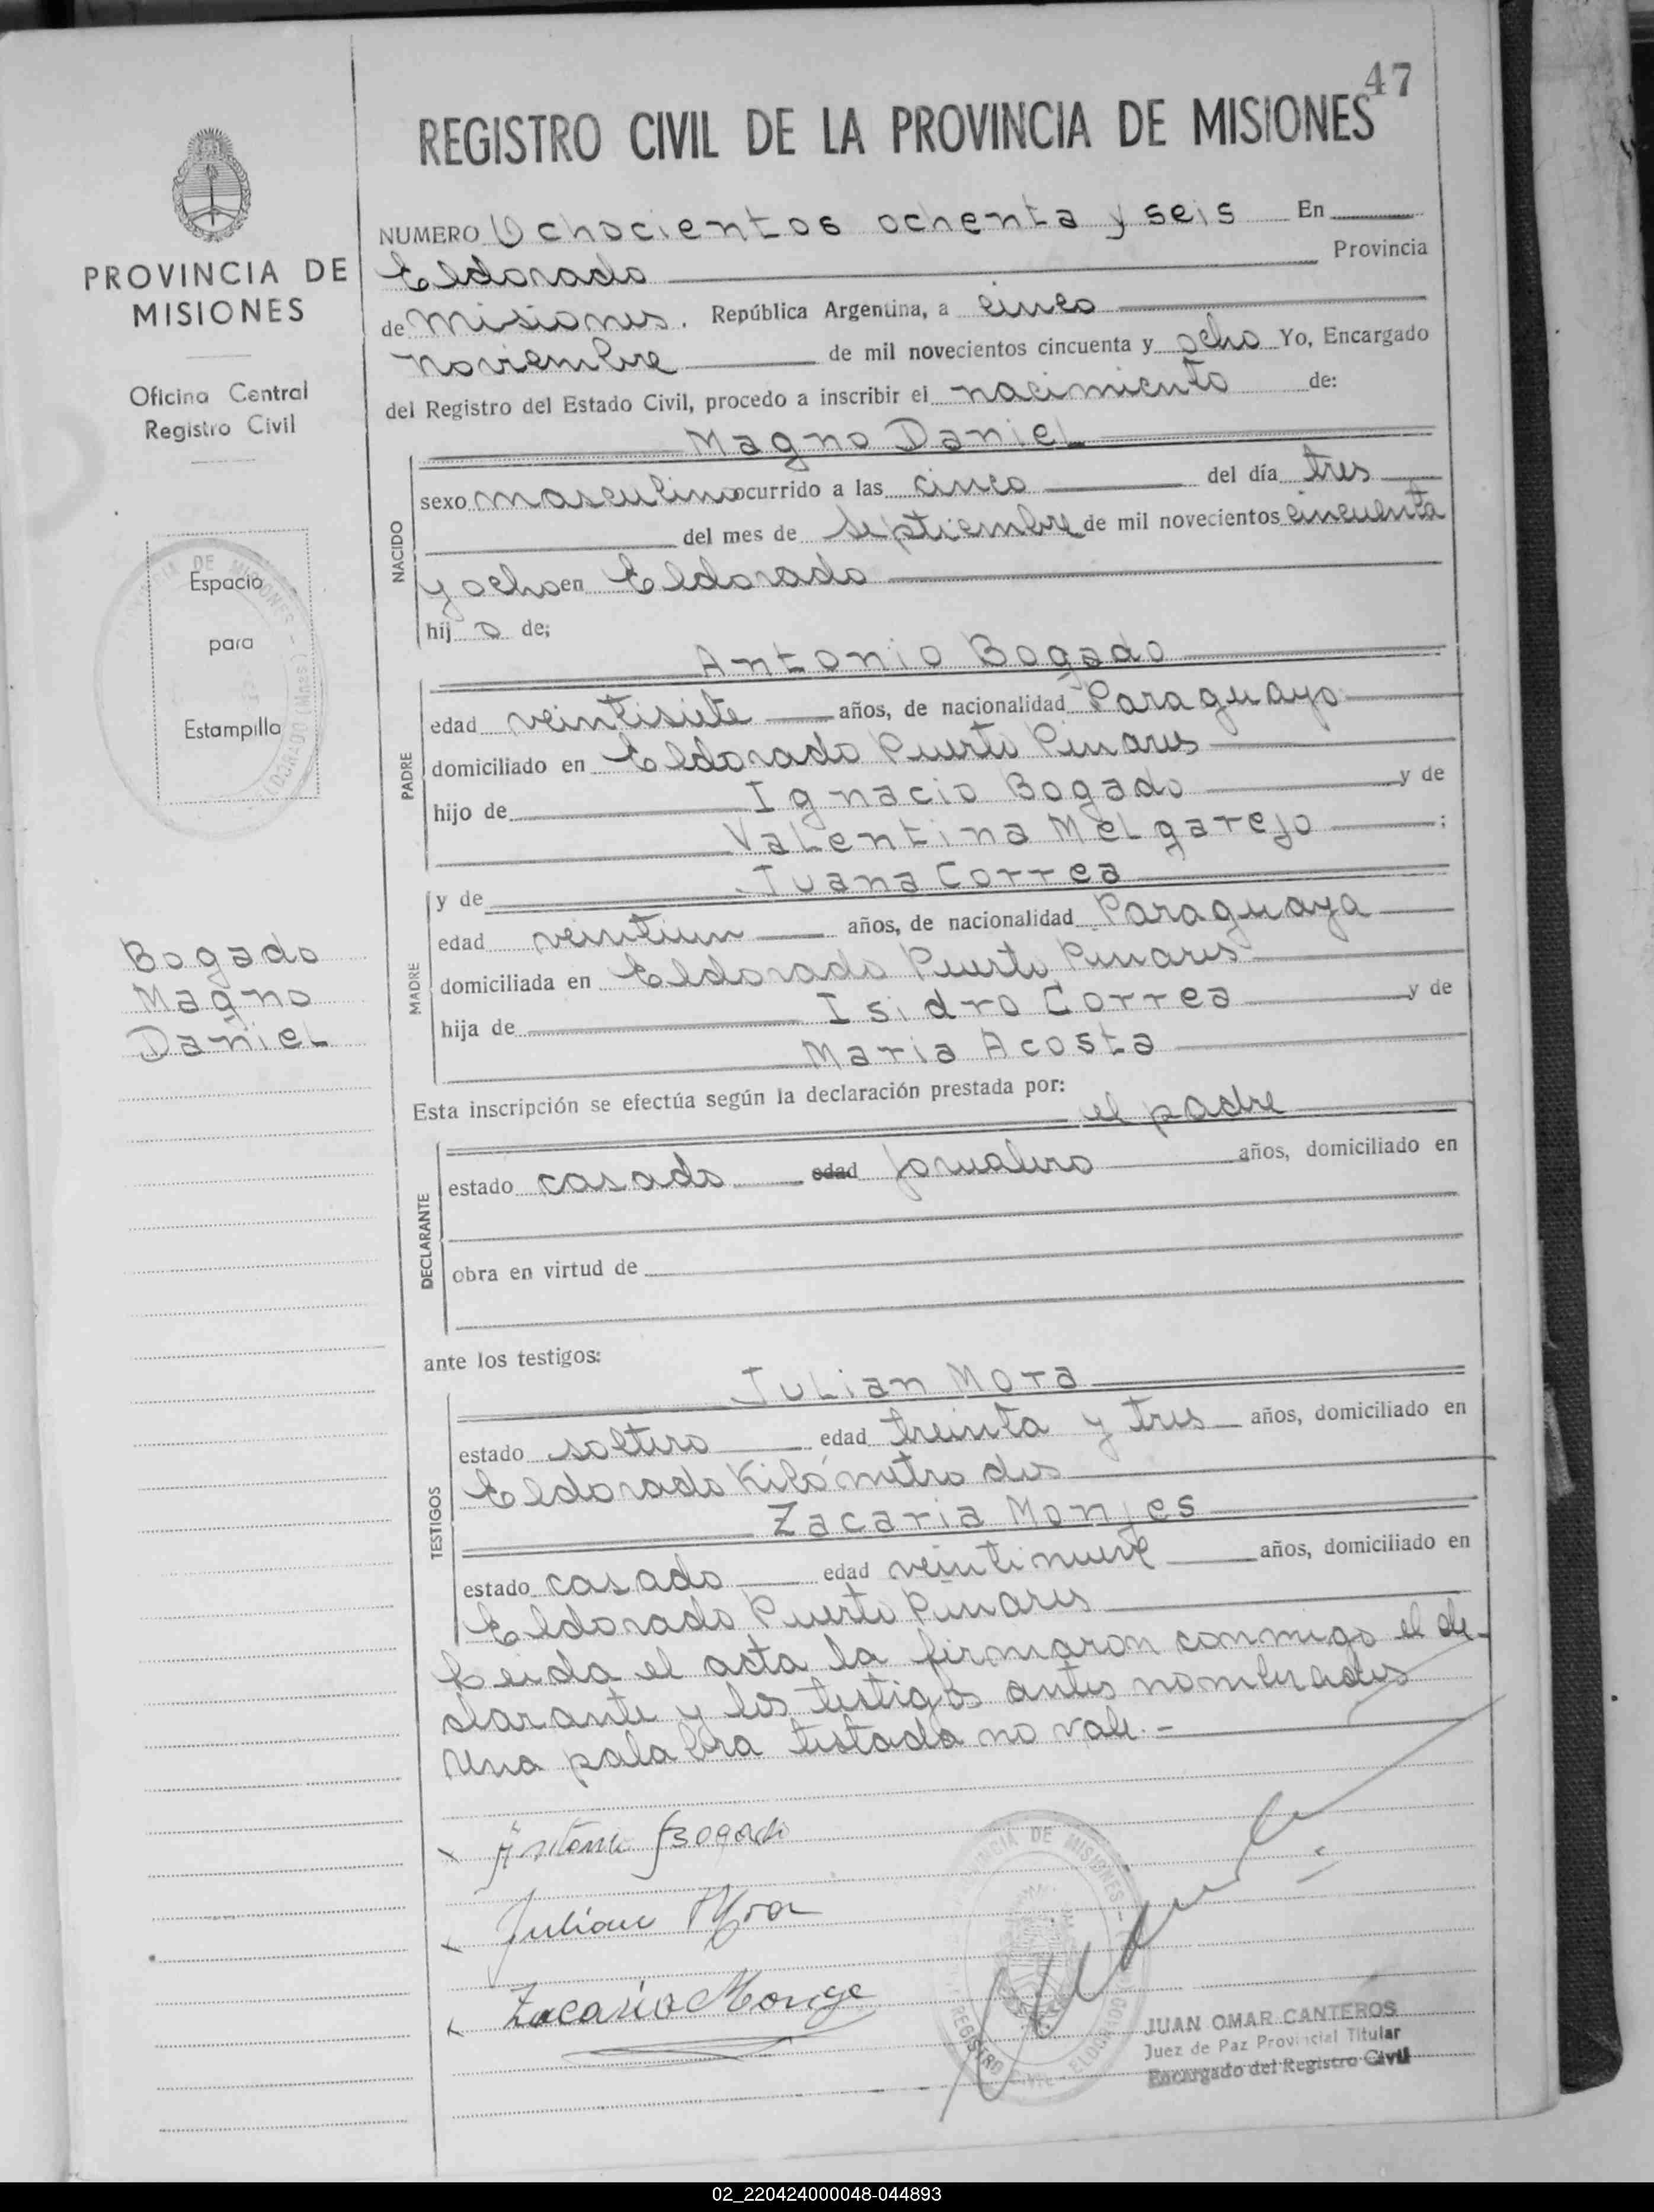 47
REGISTRO CIVIL DE LA PROVINCIA DE MISIONES
PROVINCIA DE
MISIONES
Oficina Central
Registro Civil
Espacio
para
Estampilla
Bogado
Magno
Daniel
NUMERO Ochocientos ochenta y seis En
Eldorado Provincia
de Misiones. República Argentina, a cinco
noviembre de mil novecientos cincuenta y ocho Yo, Encargado
del Registro del Estado Civil, procedo a inscribir el nacimiento de:
NACIDO
Magno Daniel
sexo masculino ocurrido a las cinco del día tres
del mes de septiembre de mil novecientos cincuenta
y ocho en Eldorado
hijo de;
PADRE
Antonio Bogado
edad veintisiete años, de nacionalidad Paraguayo
domiciliado en Eldorado Puerto Pinares
hijo de Ignacio Bogado y de
Valentina Melgarejo ;
MADRE
y de Juana Correa
edad veintiun años, de nacionalidad Paraguaya
domiciliada en Eldorado Puerto Pinares
hija de Isidro Correa y de
Maria Acosta
Esta inscripción se efectúa según la declaración prestada por:
el padre
DECLARANTE
estado casado edad jornalero años, domiciliado en
obra en virtud de
ante los testigos:
TESTIGOS
Julian Mora
estado soltero edad treinta y tres años, domiciliado en
Eldorado Kilómetro dos
Zacaria Monjes
estado casado edad veintinueve años, domiciliado en
Eldorado Puerto Pinares
Leida el acta la firmaron conmigo el de-
clarante y los testigos antes nombrados
Una palabra testada no vale.-
Antonio Bogado
Julian Mora
Zacaria Monge
PROVINCIA DE MISIONES - ELDORADO
REGISTRO CIVIL
JUAN OMAR CANTEROS
Juez de Paz Provincial Titular
Encargado del Registro Civil
02_220424000048-044893